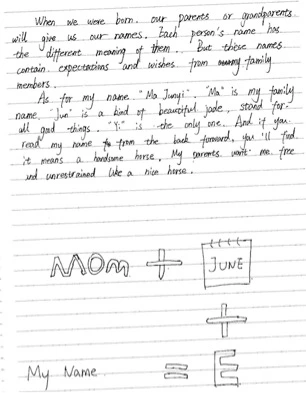 When we were born. our parents or grandparents
will give us our names. Each person's name has
the different meaning of them. But these names
contain expectations and wishes from family
members.
As for my name. "Ma Junyi". "Ma" is my family
name, "Jun" is a kind of beautiful jade, stand for
all good things. "Yi" is the only one. And if you
read my name from the back forward, you'll find
it means a handsome horse. My parents want me free
and unrestrained like a nice horse.
MOM + JUNE
+
My Name = E